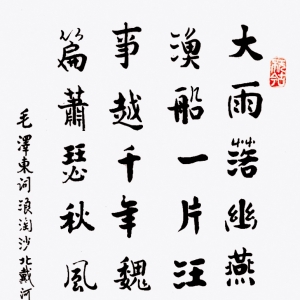 大雨落幽燕
渔船一片汪
事越千年魏
篇萧瑟秋风
毛泽东词浪淘沙北戴河